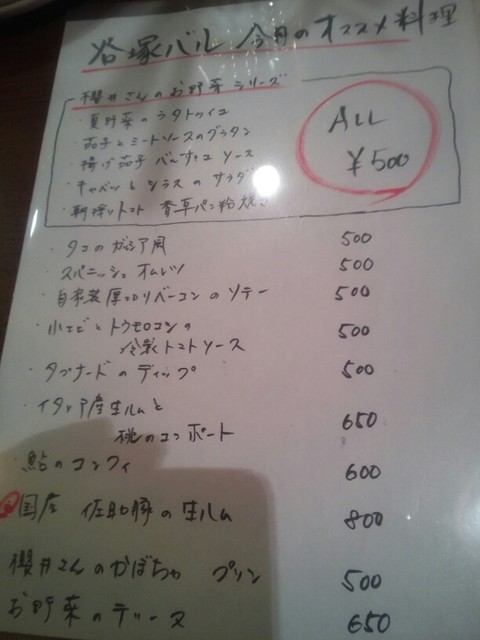 谷塚バル 今月のオススメ料理
櫻井さんのお野菜シリーズ
・夏野菜のラタトゥイユ
・茄子とミートソースのグラタン
・揚げ茄子 バルサミコソース
・キャベツとシラスのサラダ
・朝採りトマト 香草パン粉焼き
ALL
¥500
・タコのガリシア風 500
・スパニッシュオムレツ 500
・自家製厚切りベーコンのソテー 500
・小エビとトウモロコシの
冷製トマトソース 500
・タプナードのディップ 500
・イタリア産生ハムと
桃のコンポート 650
・鮎のコンフィ 600
国産 佐助豚の生ハム 800
櫻井さんのかぼちゃ プリン 500
お野菜のテリーヌ 650